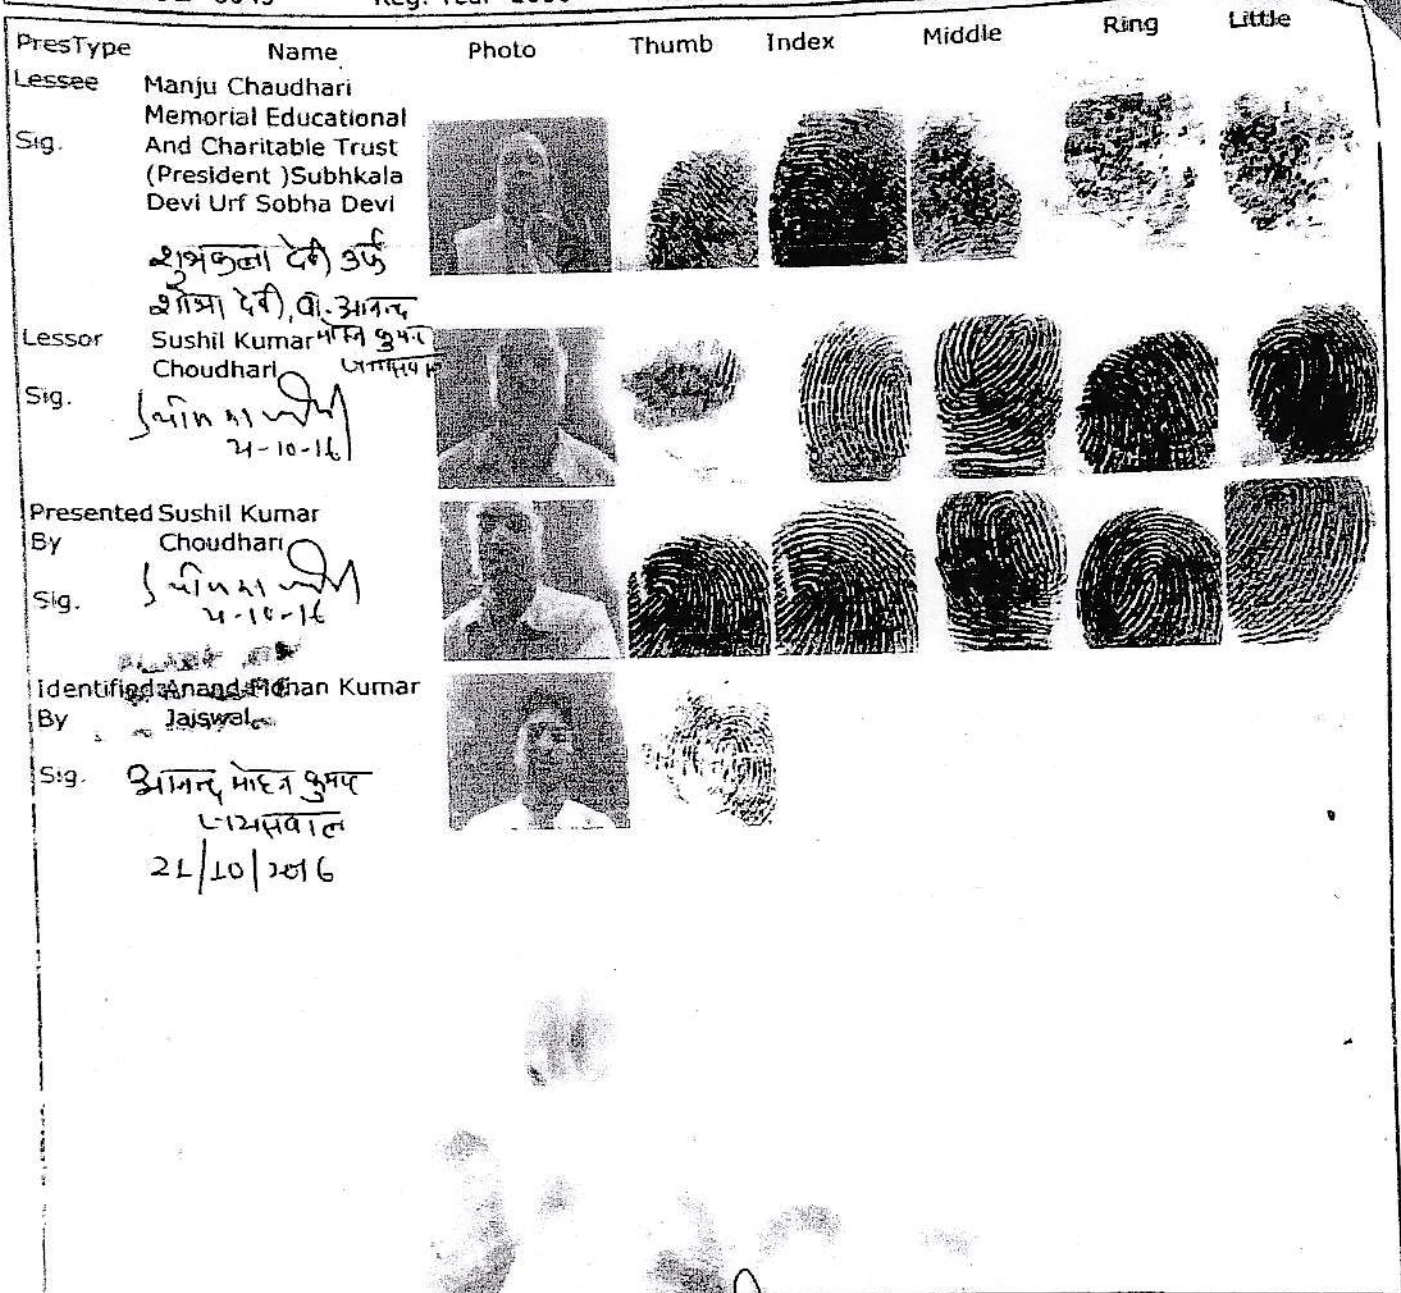 PresType Name Photo Thumb Index Middle Ring Little
Lessee Manju Chaudhari
Memorial Educational
Sig. And Charitable Trust
(President )Subhkala
Devi Urf Sobha Devi
शुभकला देवी उर्फ
शोभा देवी, व. आनन्द
Lessor Sushil Kumar
Choudhari
Sig.
21-10-16
Presented Sushil Kumar
By Choudhari
Sig.
21-10-16
Identified Anand Mohan Kumar
By Jaiswal
Sig. आनन्द मोहन कुमार
जायसवाल
21/10/2016